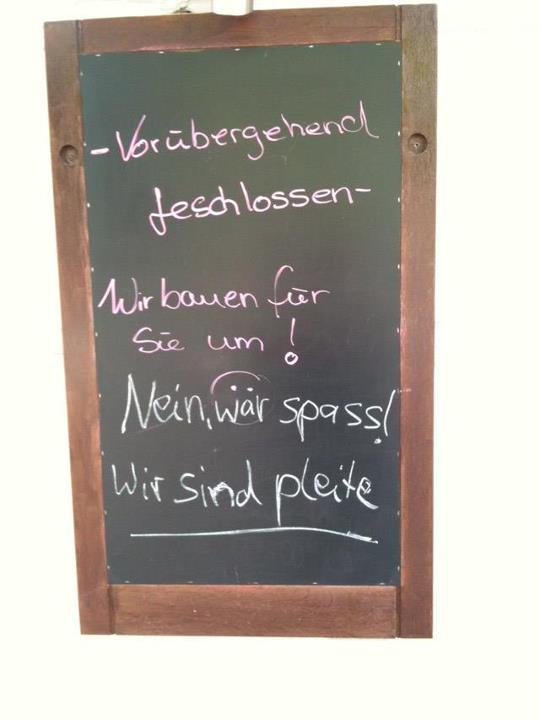 - Vorübergehend
geschlossen -
Wir bauen für
Sie um!
Nein, wär spass!
Wir sind pleite